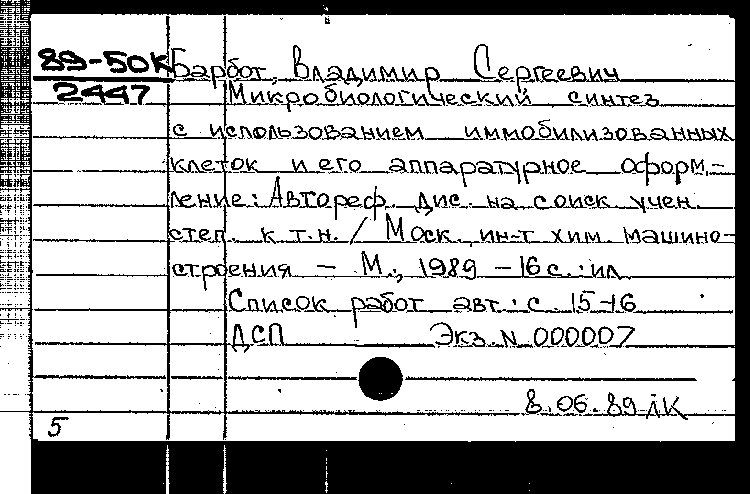 89-50к Барбот, Владимир Сергеевич
2447 Микробиологический синтез
с использованием иммобилизованных
клеток и его аппаратурное оформ-
ление: Автореф. дис. на соиск. учен.
степ. к.т.н. / Моск. ин-т хим. машино-
строения - М., 1989 - 16 с.: ил
Список работ авт.: с. 15-16
ДСП Экз. N 000007
8.06.89
5